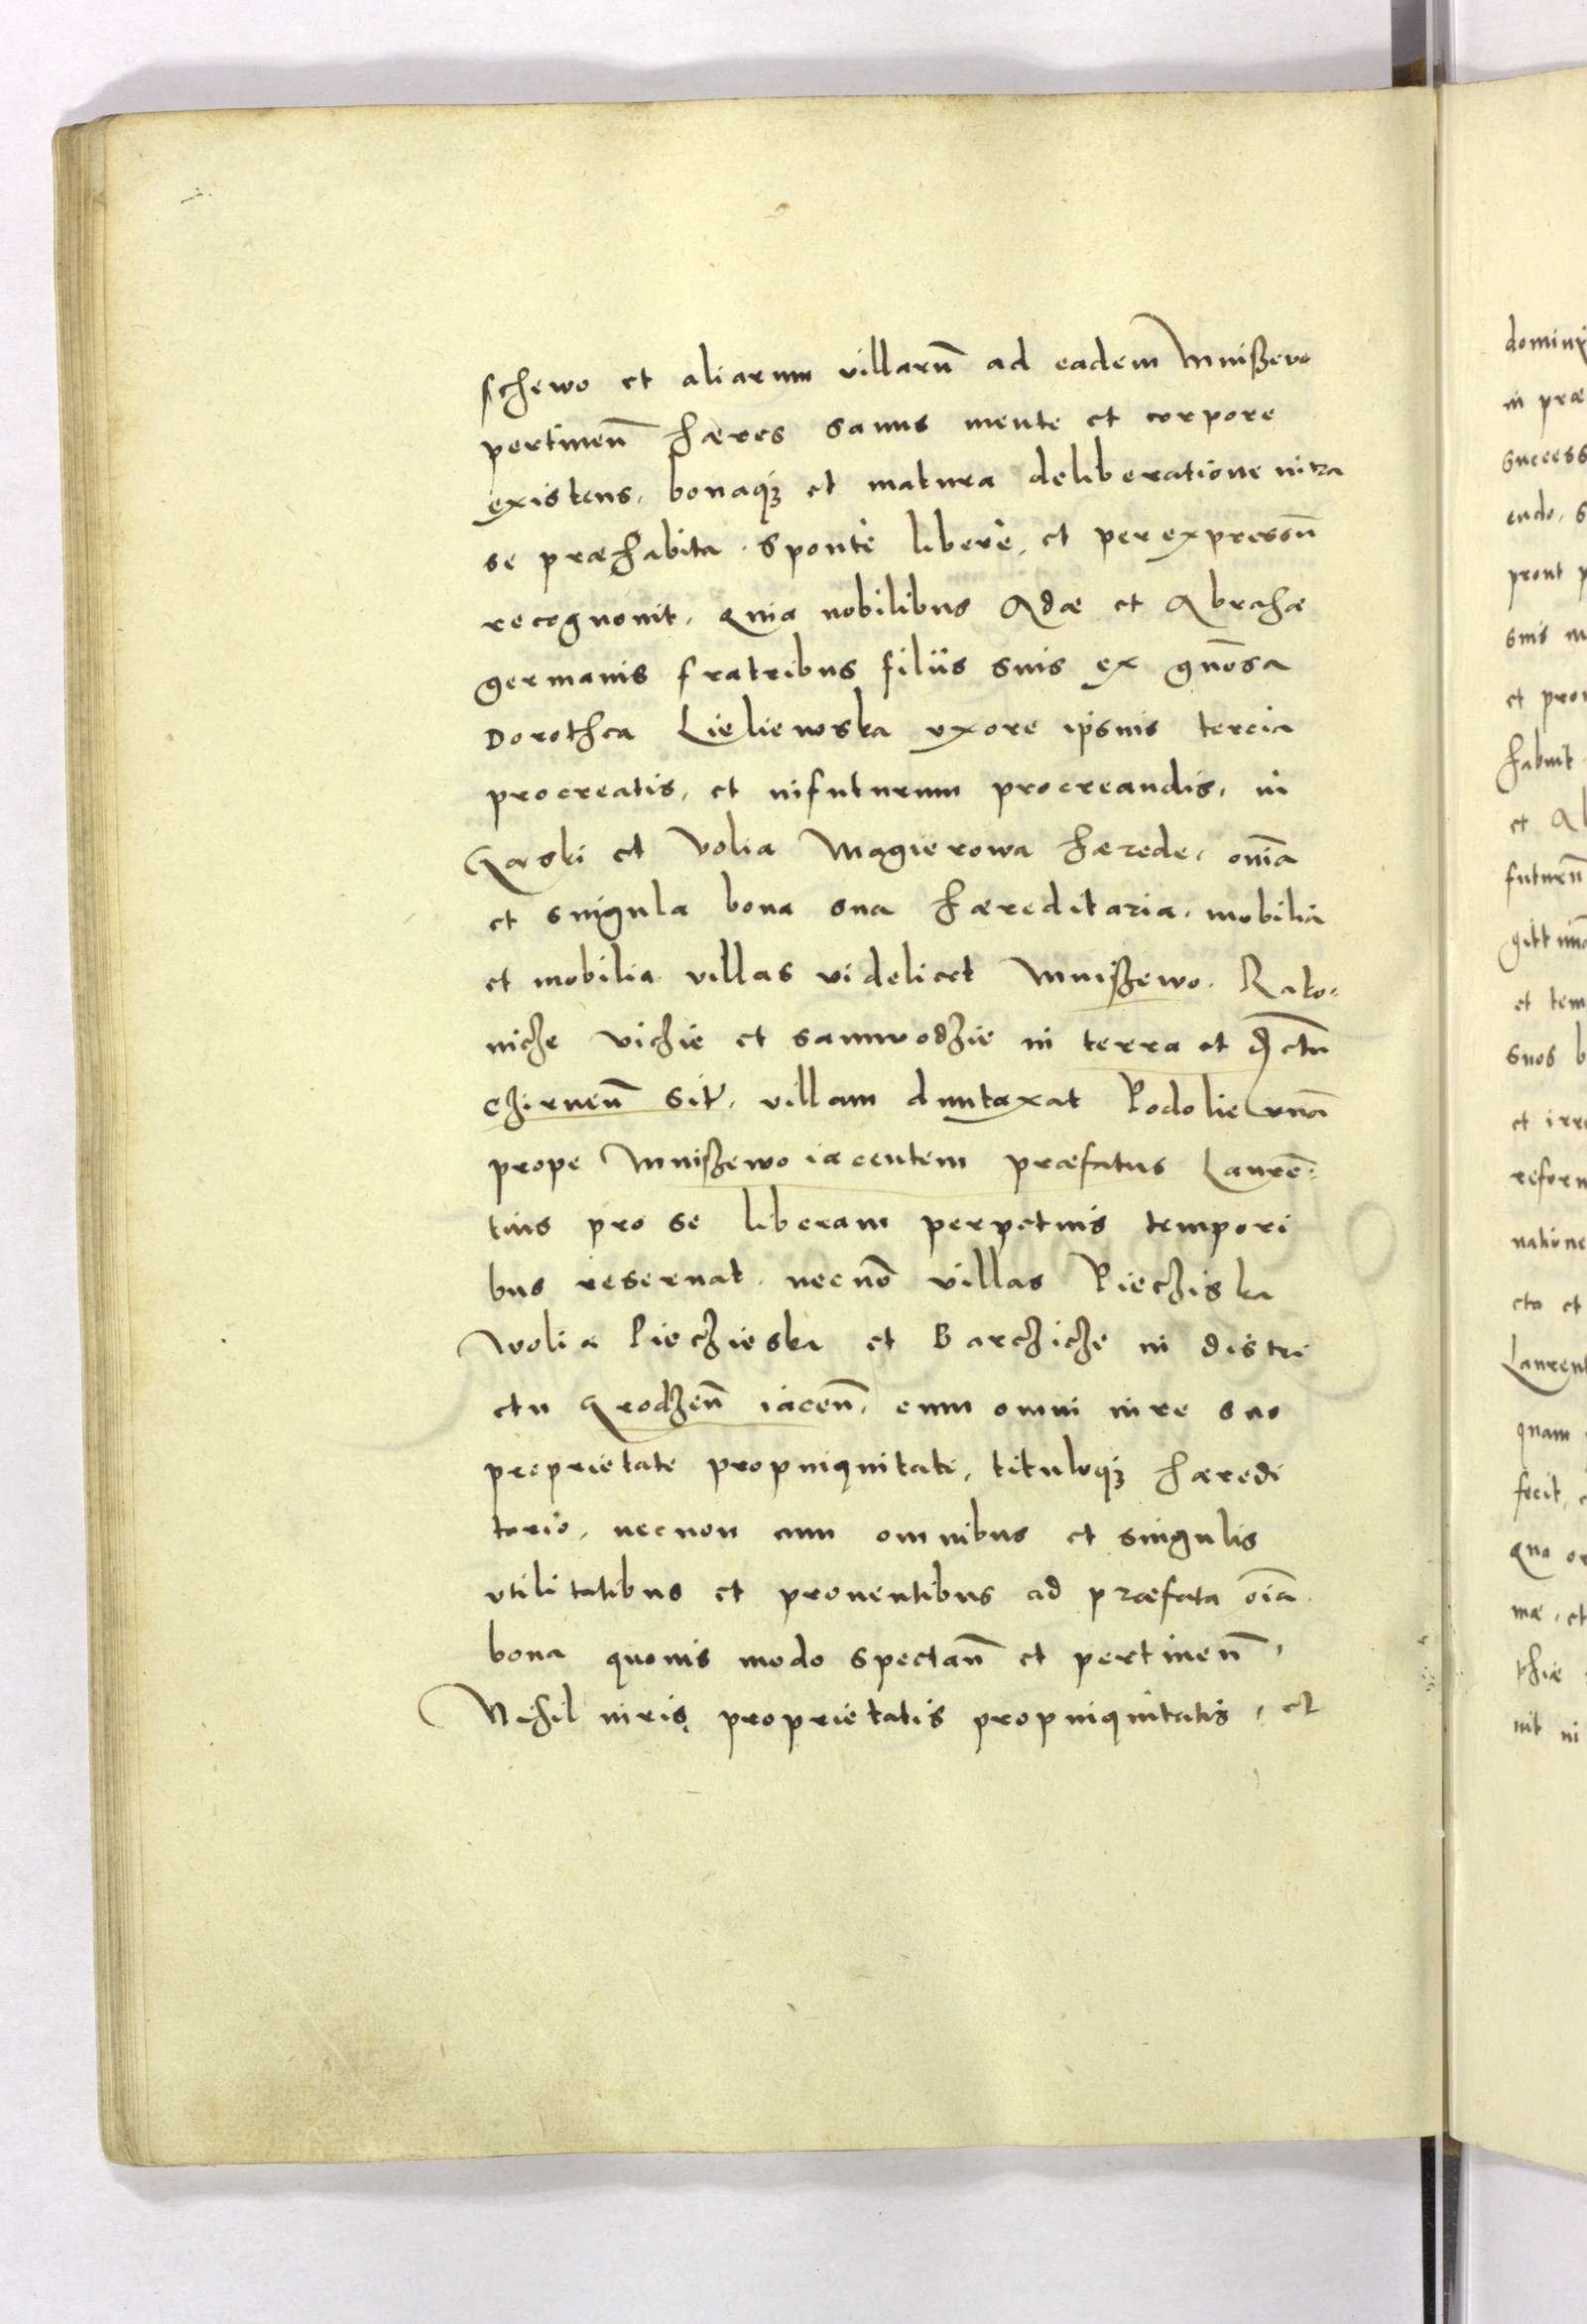 schewo et aliarum villarū ad eadem Mnißewo
pertinen̄ hæres sanus mente et corpore
existens, bonaqȝ et matura deliberatione intra
se præhabita. Sponte libere, et per expressū
recognouit, quia nobilibus Adæ et Abrahæ
germanis fratribus filiis suis ex gn̄osa
Dorothea Lieliewska vxore ipsius tercia
procreatis, et infuturum procreandis, in
Garski et Volia Magierowa hærede, om̄ia
et singula bona sua hæreditaria, mobilia
et mobilia villas videlicet Mnißewo. Rako-
niche Vichie et samwodzie in terra et dictu
Chirnen̄ sit̄. villam duntaxat Podolie vnā
prope Mnißewo iacentem præfatus Laurē-
tius pro se liberam perpetuis tempori
bus reseruat. necnō villas Piechiska
Wolia Piechieska et Barchiche in distri
ctu Grodzen̄ iacen̄, cum omni iure suo
proprietate propinquitate, tituloqȝ hæredi
tario, necnon cum omnibus et singulis
vtilitatibus et prouentibus ad præfata oīa
bona quouis modo spectan̄ et pertinen̄,
Nihil iuris proprietatis propinquitatis, et
dominy
in præ
success
endo, s
prout p
suis
et pro
habuit
et Al
futurū
gittim
et tem
suos b
et irre
reform
natione
cto et
Laurent
quam
fecit,
qua or
mæ, et
thiæ
uit in